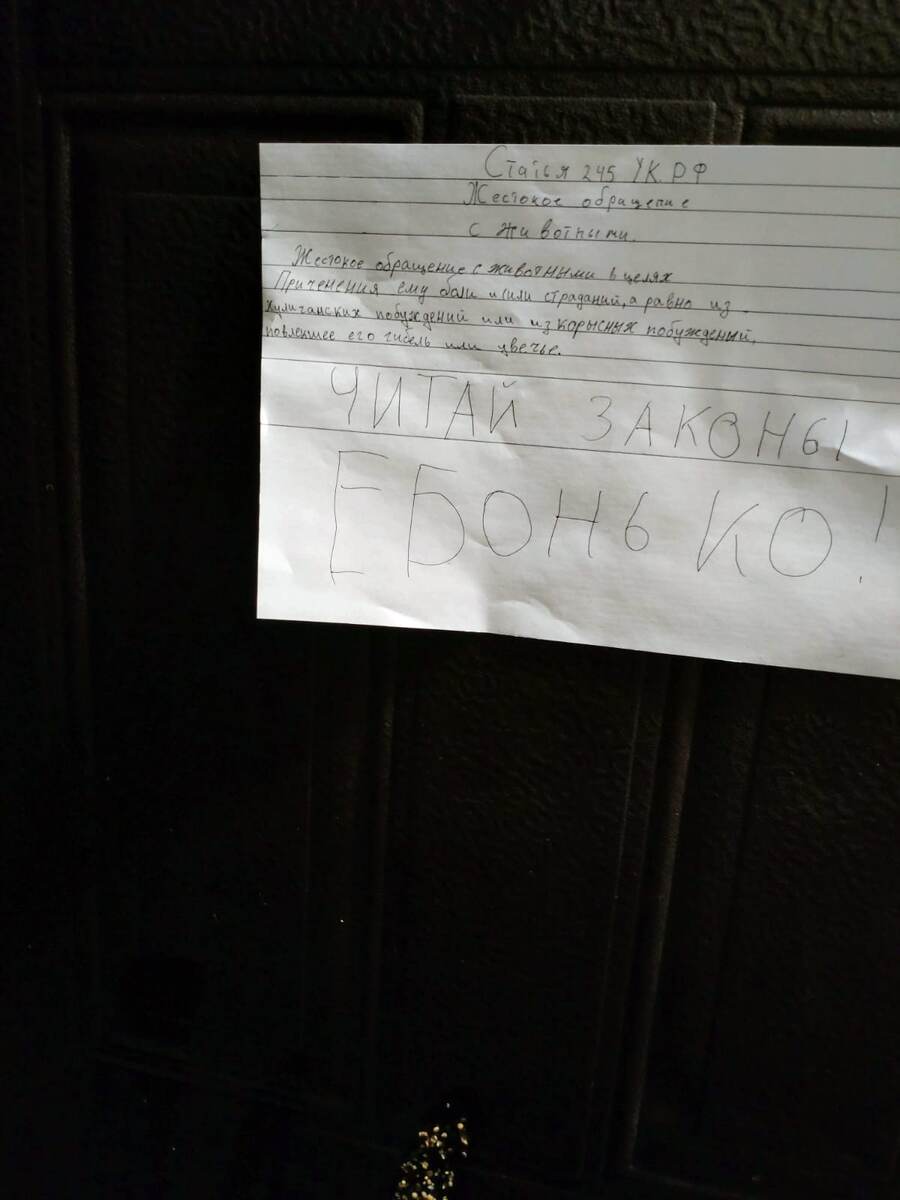 Статья 245 УК.РФ
Жестокое обращение
с животными.
Жестокое обращение с животными в целях
Приченения ему боли и(или страданий, а равно из
хулиганских побуждений или из корысных побуждений,
повлекшее его гибель или увечье.
ЧИТАЙ ЗАКОНЫ
ЕБОНЬКО!